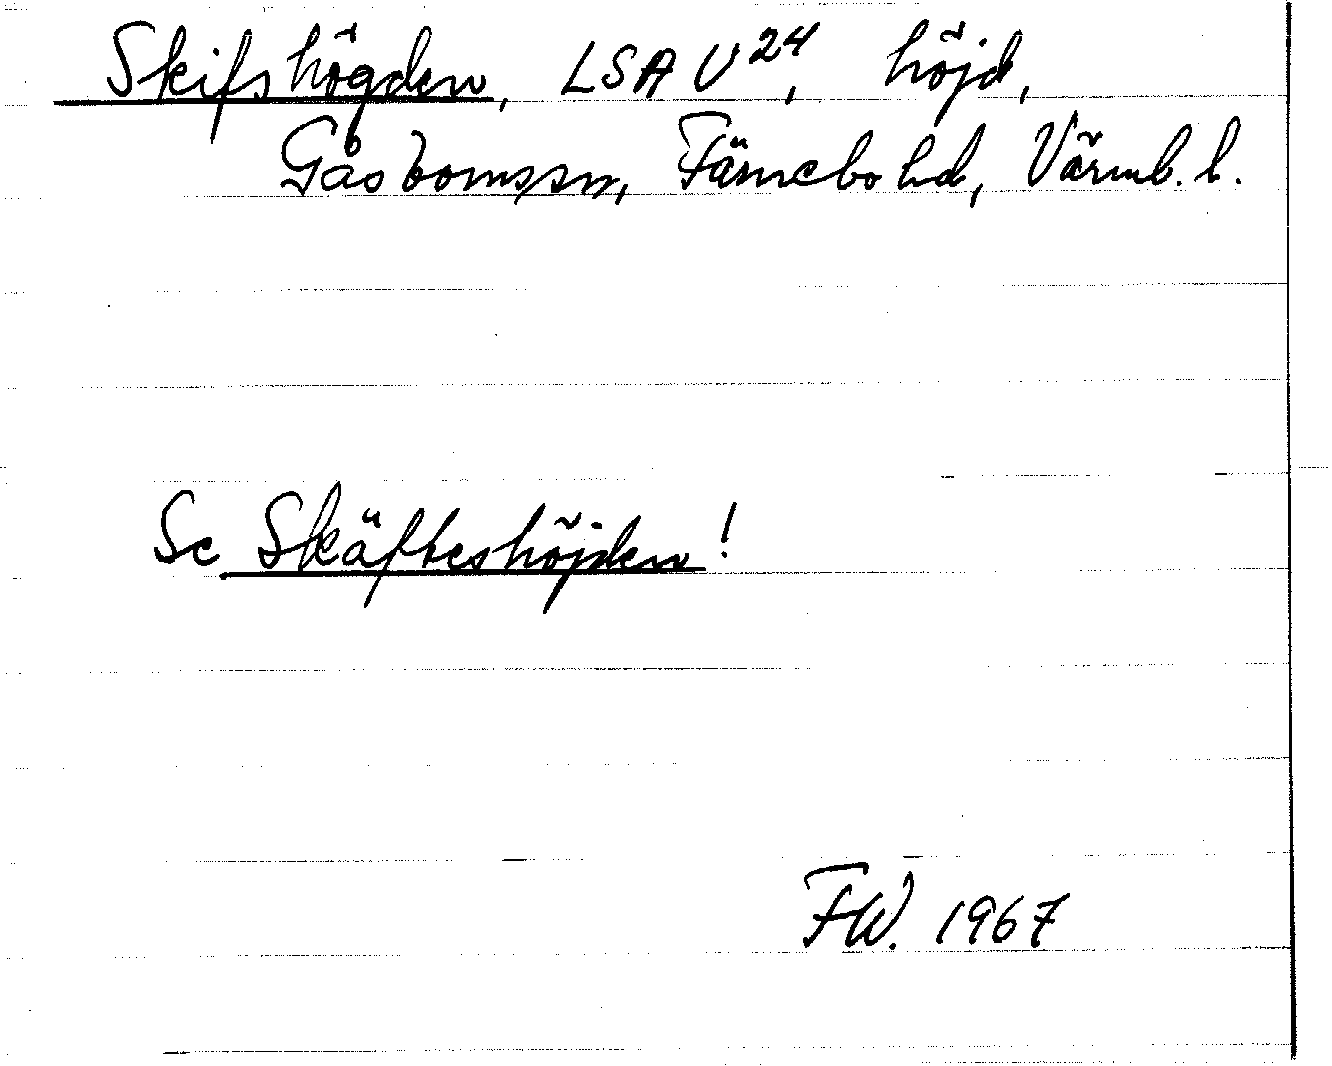 Skifshögden, LSA V24, höjd,
Gåsbornssn, Färnebo hd, Värml. l.
Se Skäfteshöjden!
FW. 1967